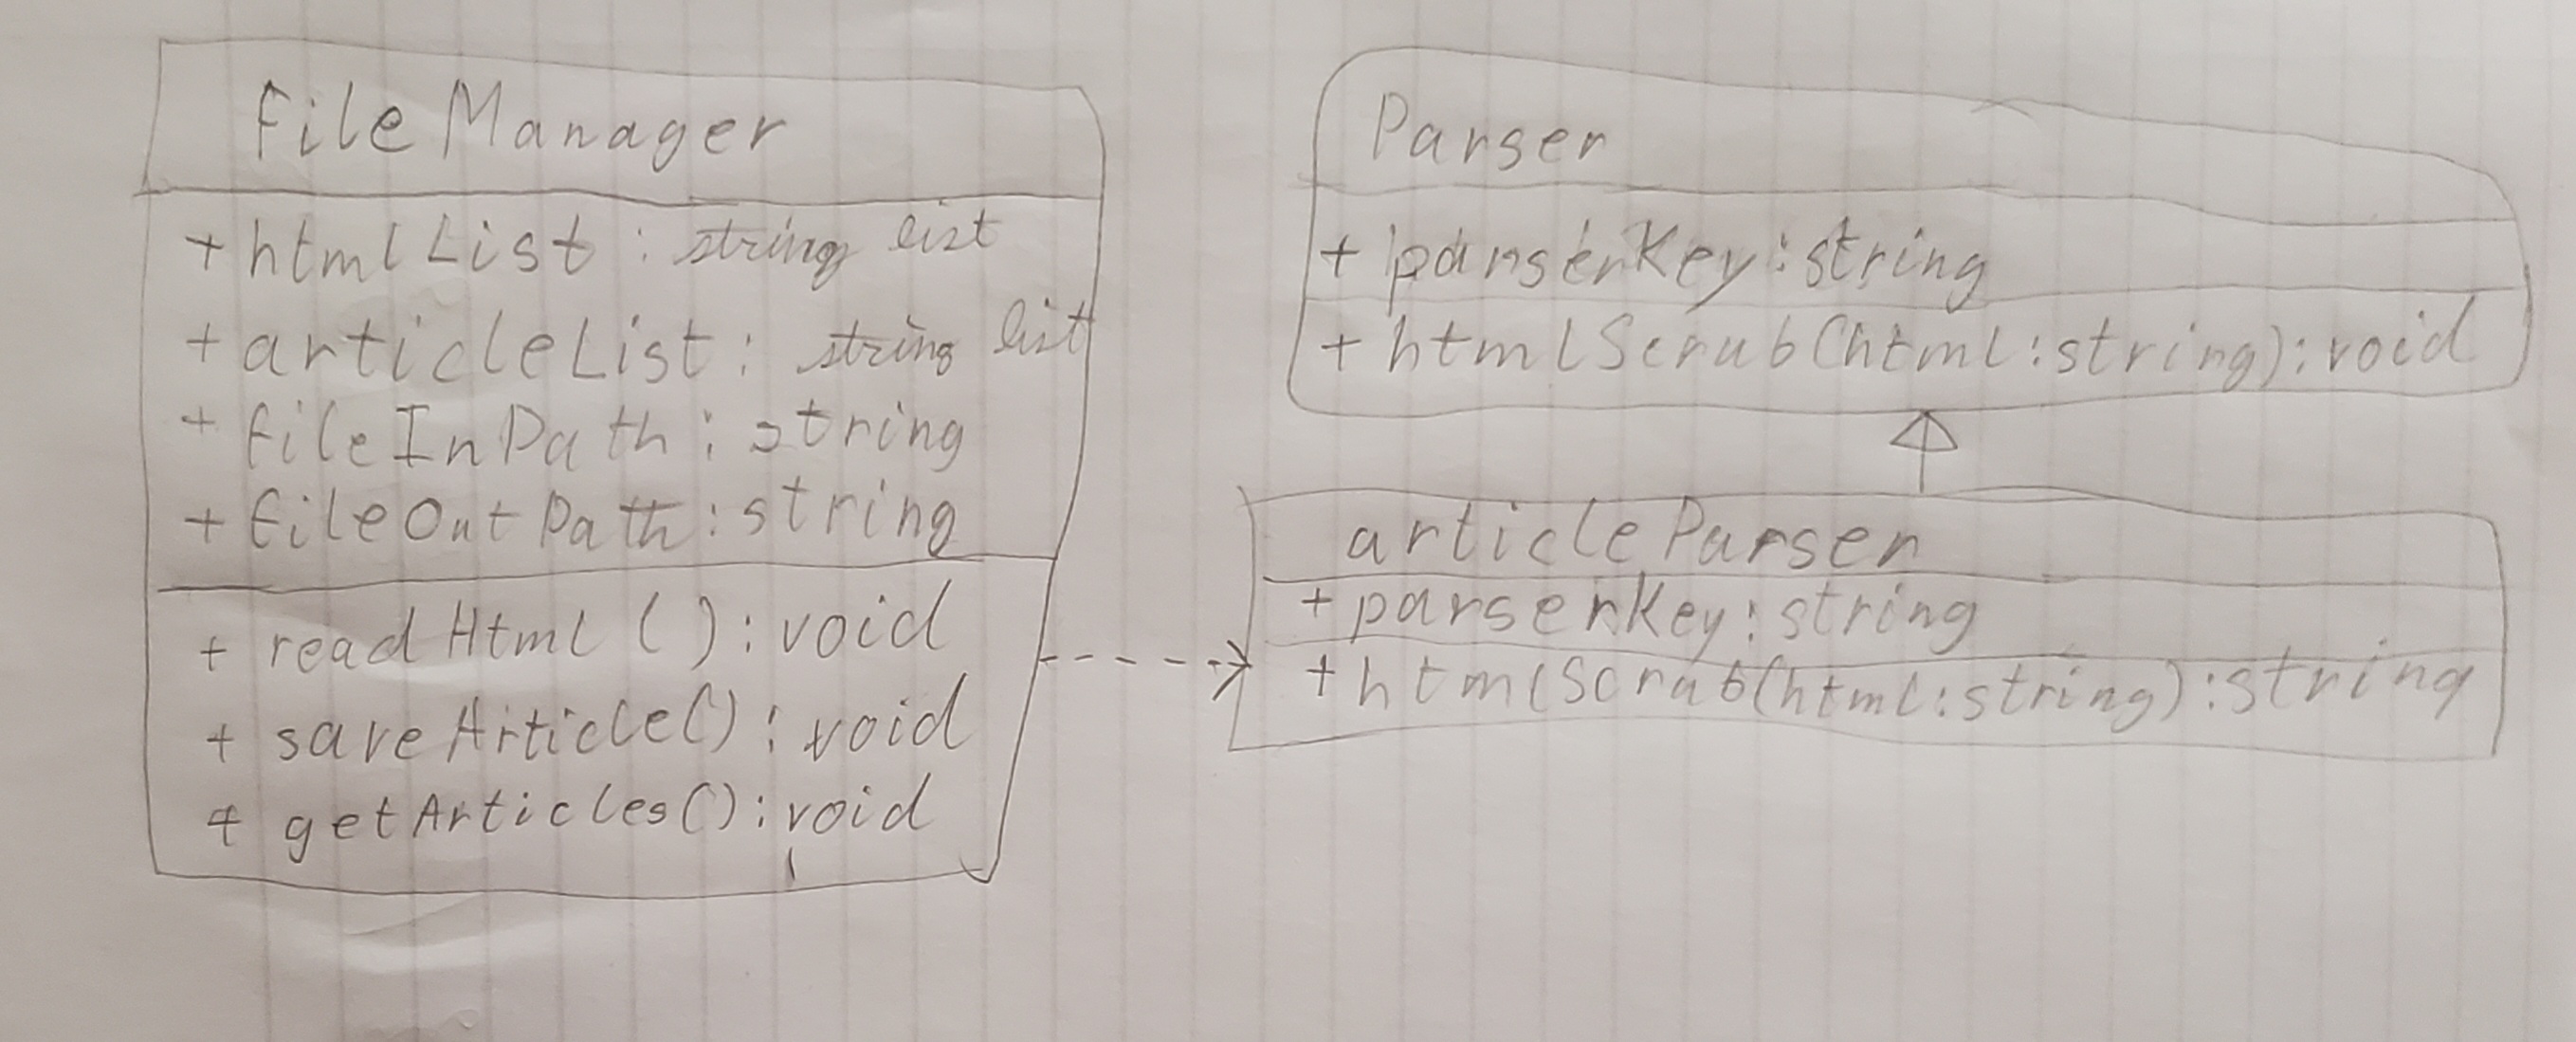 fileManager
+ htmlList : string list
+ articleList : string list
+ fileInPath : string
+ fileOutPath : string
+ readHtml ( ) : void
+ saveArticle() : void
+ getArticles() : void
Parser
+ parserKey : string
+ htmlScrub(html : string) : void
articleParser
+ parserKey : string
+ htmlScrub(html : string) : string